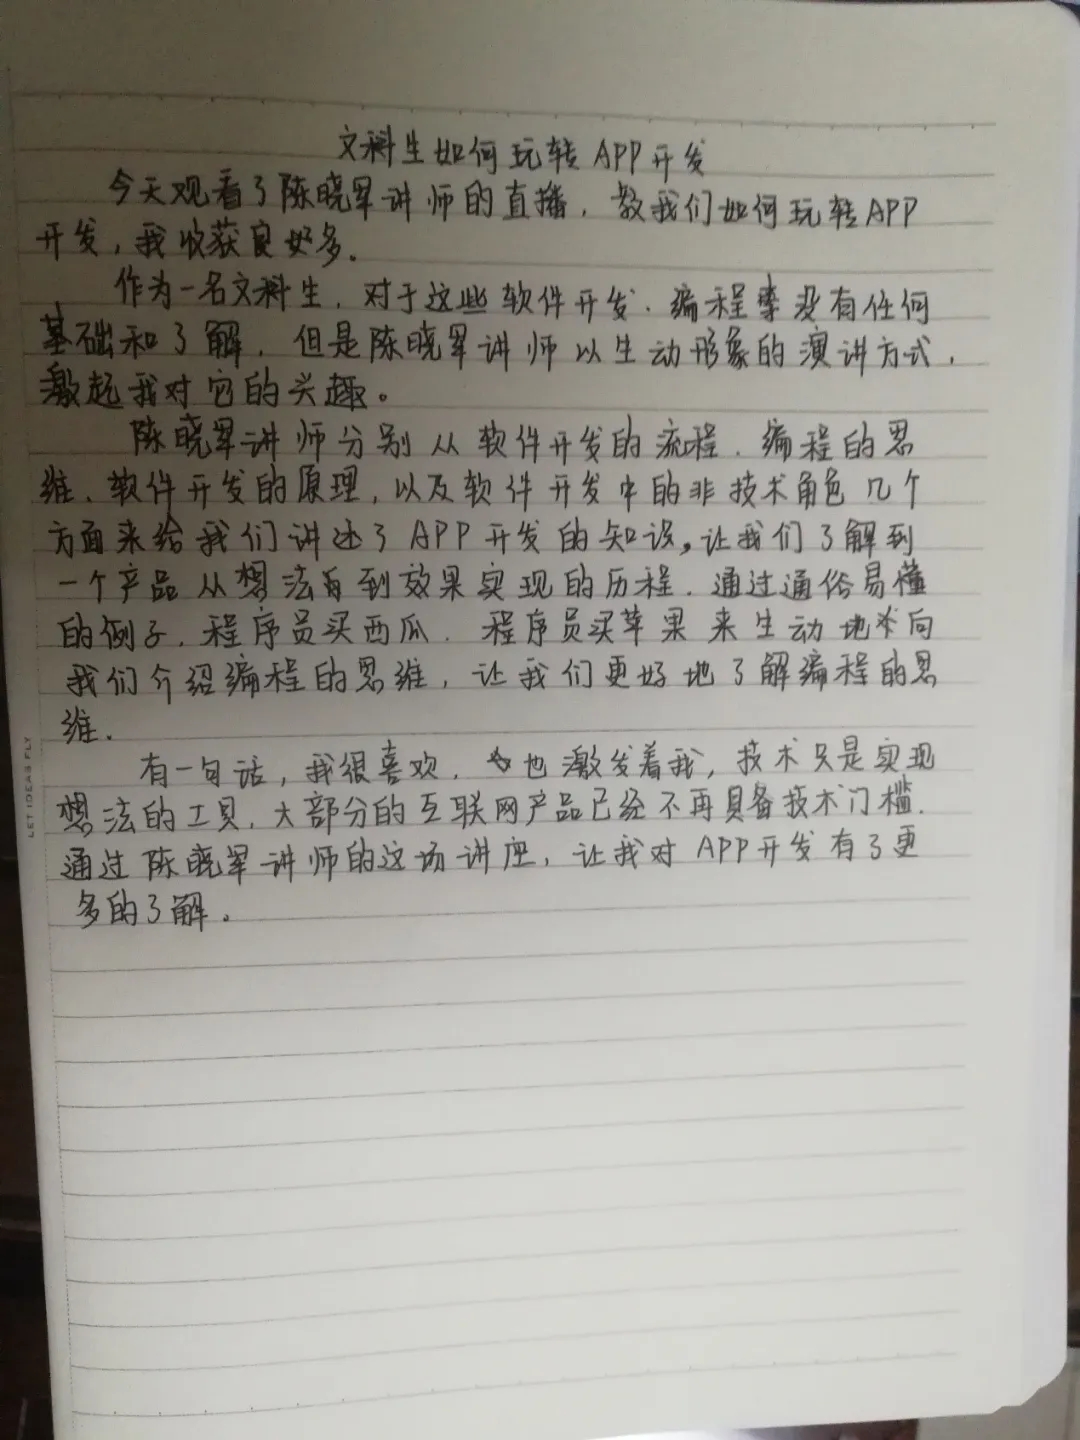 文科生如何玩转APP开发
今天观看了陈晓军讲师的直播，教我们如何玩转APP
开发，我收获良好多.
作为一名文科生，对于这些软件开发、编程 没有任何
基础和了解，但是陈晓军讲师以生动形象的演讲方式，
激起我对它的兴趣。
陈晓军讲师分别从软件开发的流程、编程的思
维、软件开发的原理，以及软件开发中的非技术角色几个
方面来给我们讲述了APP开发的知识，让我们了解到
一个产品从想法 到效果实现的历程，通过通俗易懂
的例子，程序员买西瓜、程序员买苹果来生动地 向
我们介绍编程的思维，让我们更好地了解编程的思
维.
有一句话，我很喜欢， 也激发着我，技术只是实现
想法的工具，大部分的互联网产品已经不再具备技术门槛.
通过陈晓军讲师的这场讲座，让我对APP开发有了更
多的了解。
LET IDEAS FLY